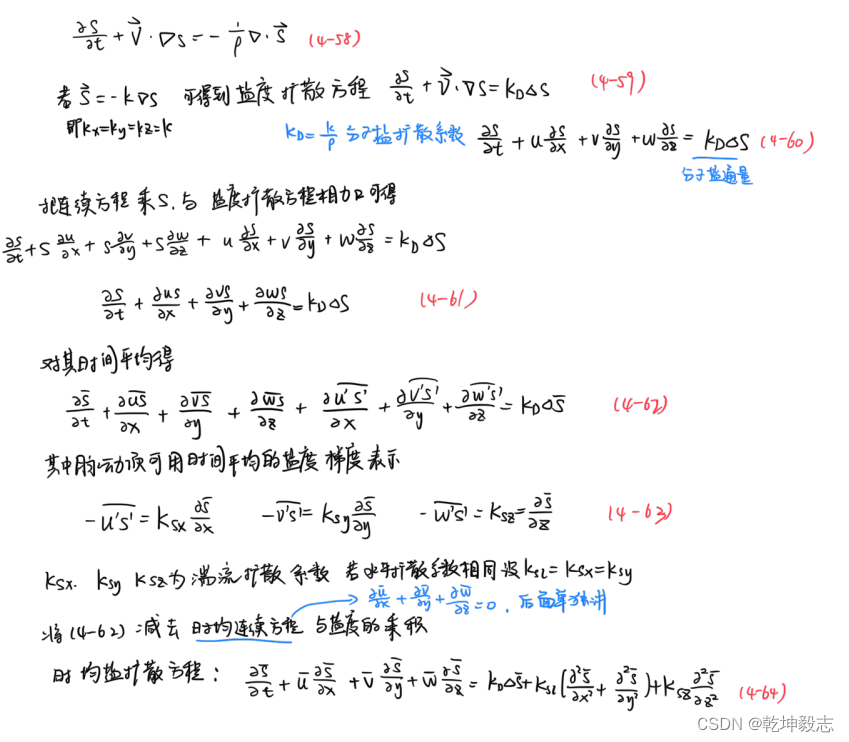 ∂S/∂t + V⃗·∇S = -1/ρ ∇·S⃗ (4-58)
若 S⃗ = -k∇S 可得到盐度扩散方程 ∂S/∂t + V⃗·∇S = k_D ΔS (4-59)
即 kx=ky=kz=k
k_D = k/ρ 分子盐扩散系数 ∂S/∂t + u ∂S/∂x + v ∂S/∂y + w ∂S/∂z = k_D ΔS (4-60)
分子盐通量
把连续方程乘S,与盐度扩散方程相加可得
∂S/∂t + S ∂u/∂x + S ∂v/∂y + S ∂w/∂z + u ∂S/∂x + v ∂S/∂y + w ∂S/∂z = k_D ΔS
∂S/∂t + ∂uS/∂x + ∂vS/∂y + ∂wS/∂z = k_D ΔS (4-61)
对其时间平均得
∂S̅/∂t + ∂u̅S̅/∂x + ∂v̅S̅/∂y + ∂w̅S̅/∂z + ∂\overline{u'S'}/∂x + ∂\overline{v'S'}/∂y + ∂\overline{w'S'}/∂z = k_D ΔS̅ (4-62)
其中脉动项可用时间平均的盐度梯度表示
-\overline{u'S'} = k_Sx ∂S̅/∂x -\overline{v'S'} = k_Sy ∂S̅/∂y -\overline{w'S'} = k_Sz = ∂S̅/∂z (4-63)
k_Sx. k_Sy k_Sz 为湍流扩散系数 若水平扩散系数相同设 k_Sl = k_Sx = k_Sy
∂u̅/∂x + ∂v̅/∂y + ∂w̅/∂z = 0, 后面单独讲
将(4-62)减去时均连续方程与盐度的乘积
时均盐扩散方程: ∂S̅/∂t + u̅ ∂S̅/∂x + v̅ ∂S̅/∂y + w̅ ∂S̅/∂z = k_D ΔS̅ + k_Sl (∂²S̅/∂x² + ∂²S̅/∂y²) + k_Sz ∂²S̅/∂z² (4-64)
CSDN @乾坤毅志